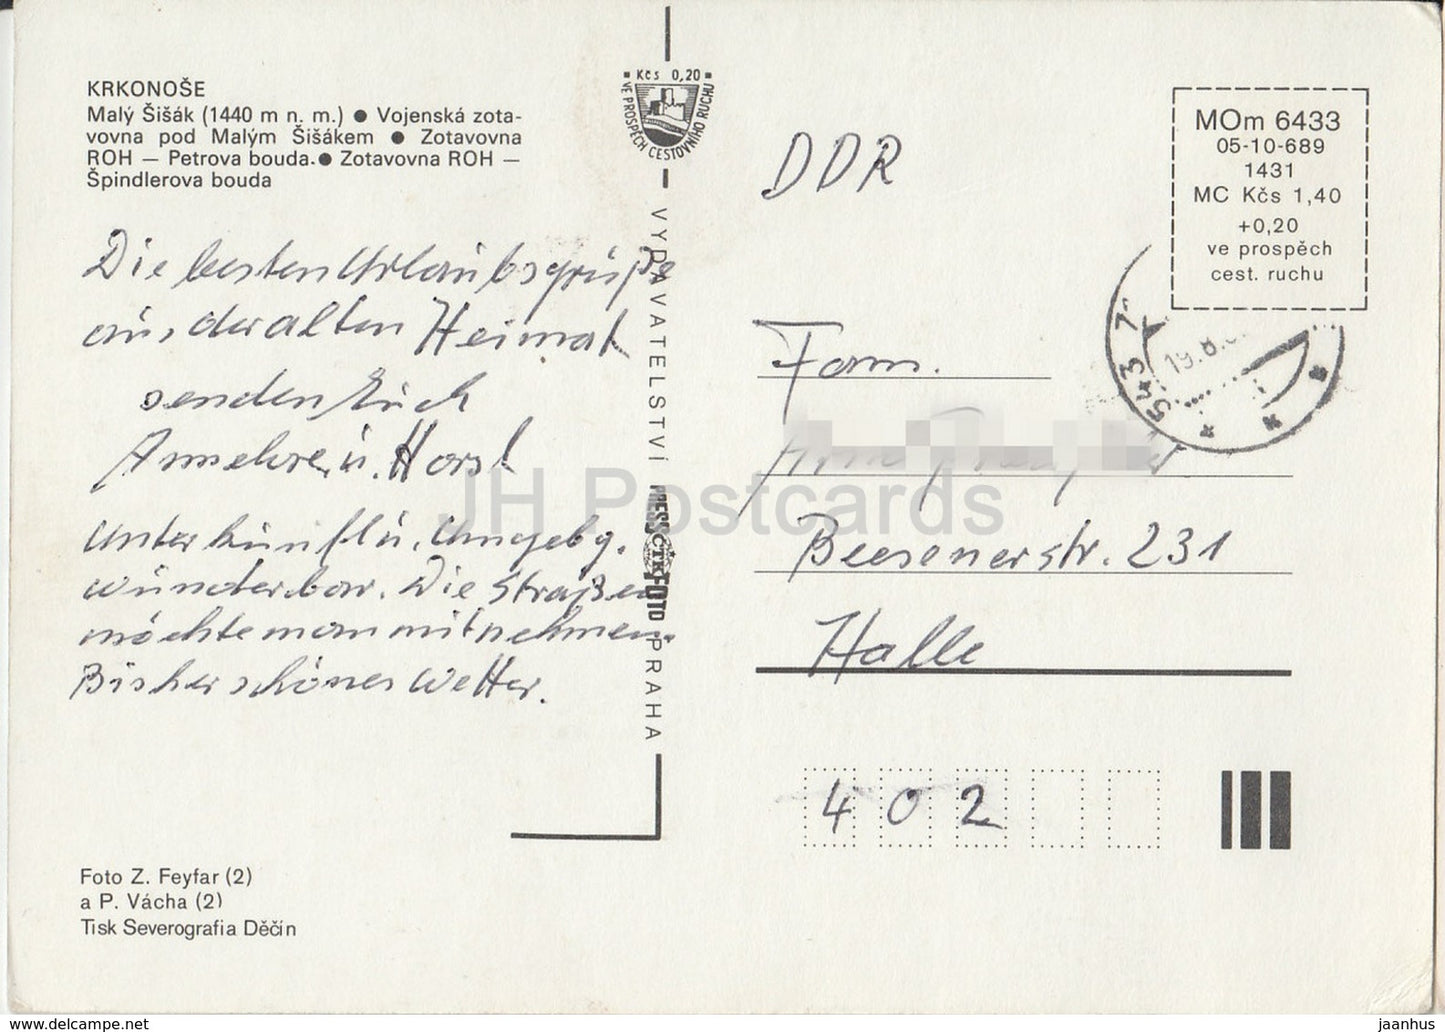 KRKONOŠE
Malý Šišák (1440 m n. m.) ● Vojenská zota-
vovna pod Malým Šišákem ● Zotavovna
ROH — Petrova bouda. ● Zotavovna ROH —
Špindlerova bouda
Die besten Urlaubsgrüße
aus der alten Heimat
senden Euch
u. Horst
Unterkunft u. Umgebg.
wunderbar. Die Straßen
möchte man mitnehmen.
Bisher schönes Wetter.
Foto Z. Feyfar (2)
a P. Vácha (2)
Tisk Severografia Děčín
Kčs 0,20
VE PROSPĚCH CESTOVNÍHO RUCHU
VYDAVATELSTVÍ PRESSFOTO PRAHA
ČTK
DDR
MOm 6433
05-10-689
1431
MC Kčs 1,40
+0,20
ve prospěch
cest. ruchu
543 7
19.8.
Fam.
Beesenerstr. 231
Halle
402
JH Postcards
www.delcampe.net
jaanhus